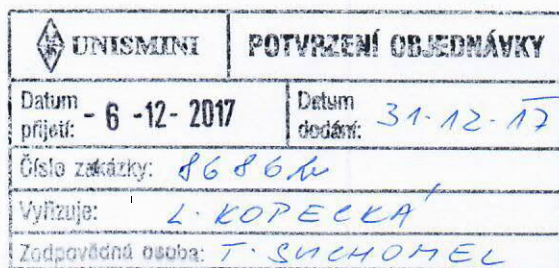 UNISMINI
POTVRZENÍ OBJEDNÁVKY
Datum přijetí: - 6 -12- 2017
Datum dodání: 31-12-17
Číslo zakázky:
Vyřizuje: L. KOPECKÁ
Zodpovědná osoba: T. SUCHOMEL